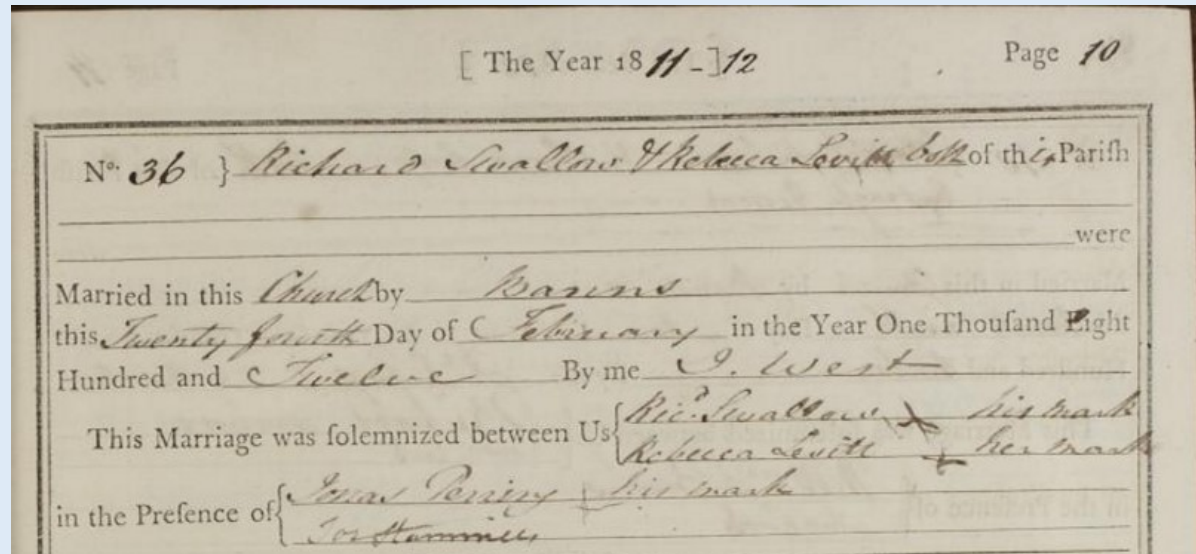 [ The Year 18 11 - ] 12 Page 10
No: 36 } Richard Swallow & Rebecca Levitt both of this Parish
were
Married in this Church by Banns
this Twenty fourth Day of February in the Year One Thousand Eight
Hundred and Twelve By me J. West
This Marriage was solemnized between Us { Ricd. Swallow X his mark
Rebecca Levitt + her mark
in the Presence of { Jonas Perriny + his mark
Jos